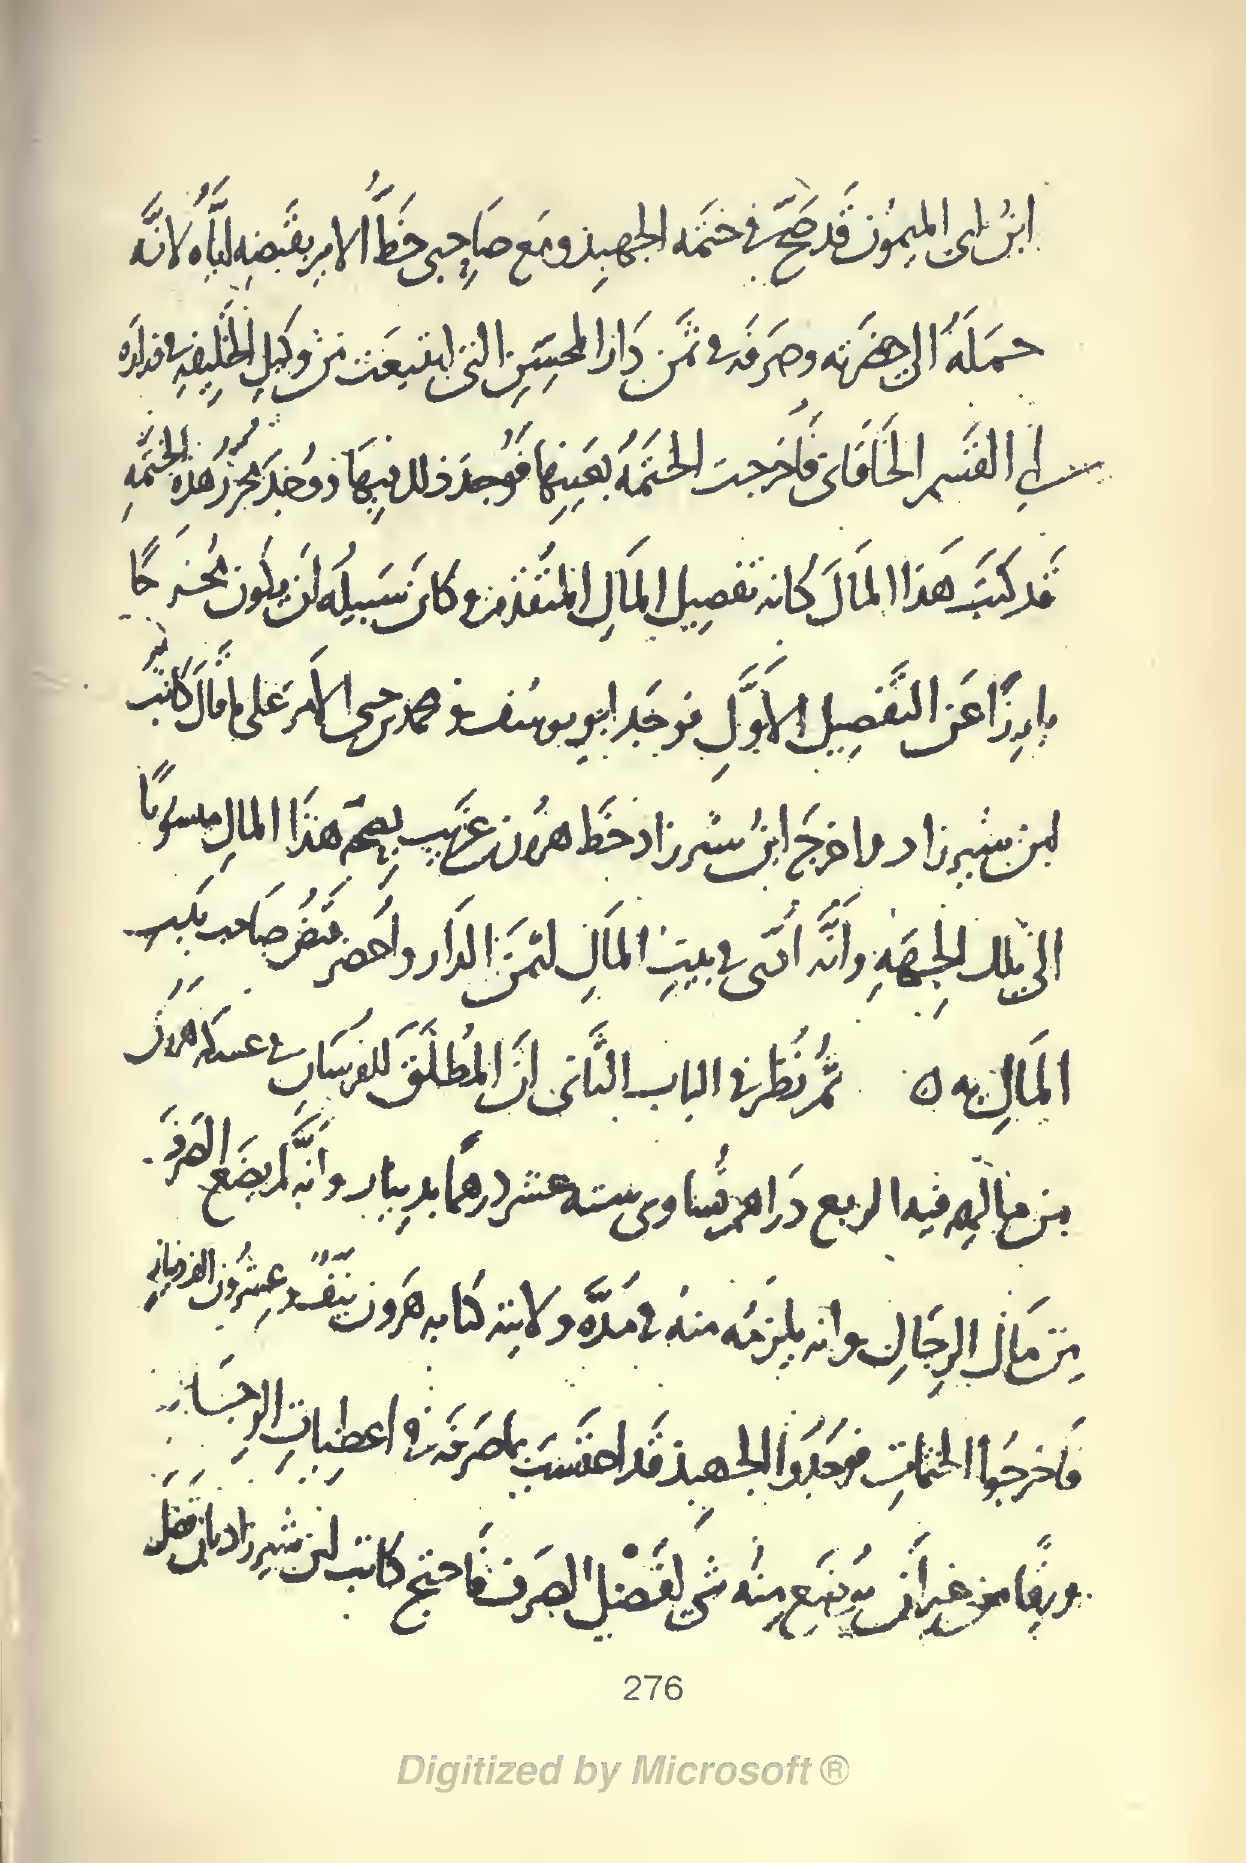 ابنُ ابى الميمون قد صَحَّ في ختمه الجهبذ ومَع صَاحبى خَطُّ الامير بقبضِه ايَّاه لانَّه
حمَلَهُ الى حضرَته وصَرَفَه في ثمَن دَار المحسّنِ التى ابتيعَت من وكيلِ الخليفهِ في وزاره
ابى القسم الخَاقَانى فاُخرجت الختمَهُ بعَينِها فوُجدَ ذلك فيهَا ووُجدَ مُحرِّرُ هذه الختمَهِ
قَد كتَبَ هَذا المالَ كانه تفصِيل المالِ المتقدم وكان سَبيلُه اَن يكون مُخرَجًا
بارِزًا عَن التفصِيل الاوَّلِ فوجَد ابو يوسُف ومحمد بن جنى الامرَ على ما قالَ كاتبُ
ابن شيرزاد واخرجَ ابنُ شيرزاد خَط هرون بن غريب بصحّه هذَا المالِ منسوبًا
الى تلك الجهَهِ وانَّه اُدّى في بيتِ المال لثمَن الدَار واُحضر صاحب بيت
المَالِ به ٥ ثُمَّ نُظرَ في الباب الثَّانى انَّ المُطلَق للفرسَان في عسكر هرون
من مالهم فيه الربع دَراهم تُساوى سته عشر درهمًا بدينار وانَّه لم يضَع الصَرفَ
مِن مَال الرجَالِ وانه يلزمُه منهُ في مدَّه ولايته كتابه هَرون نيّفٌ وعِشرُون الف دينار
فاخرجُوا الختماتِ فوجَدوا الجهبذ قد احتسَبَ بما صَرفَه في اعطياتِ الرجَاله
ورقًا من غير اَن يُوضَع مِنهُ شى لفَضْلِ الصَرف فاحتج كاتب ابن شيرزاد بان فضلَ
276
Digitized by Microsoft ®